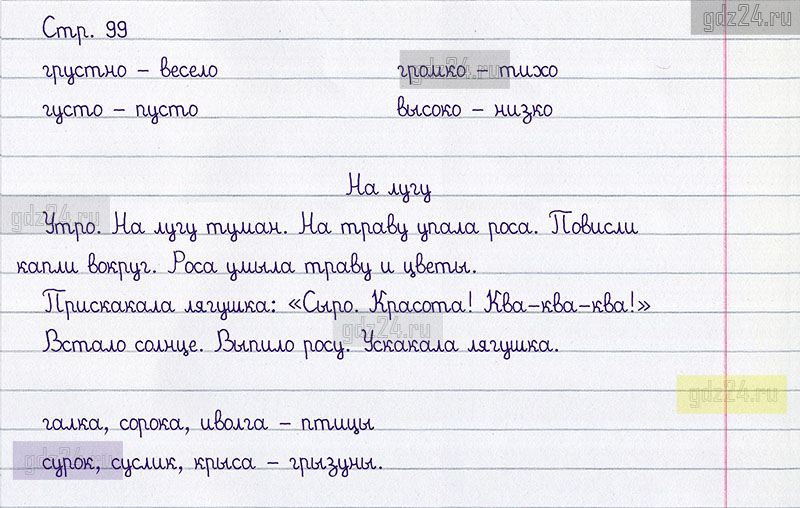 gdz24.ru
Стр. 99
грустно – весело громко – тихо
gdz24.ru
густо – пусто высоко – низко
На лугу
gdz24.ru
Утро. На лугу туман. На траву упала роса. Повисли
капли вокруг. Роса умыла траву и цветы.
Прискакала лягушка: «Сыро. Красота! Ква-ква-ква!»
gdz24.ru
Встало солнце. Выпило росу. Ускакала лягушка.
gdz24.ru
галка, сорока, иволга – птицы
сурок, суслик, крыса – грызуны.
gdz24.ru